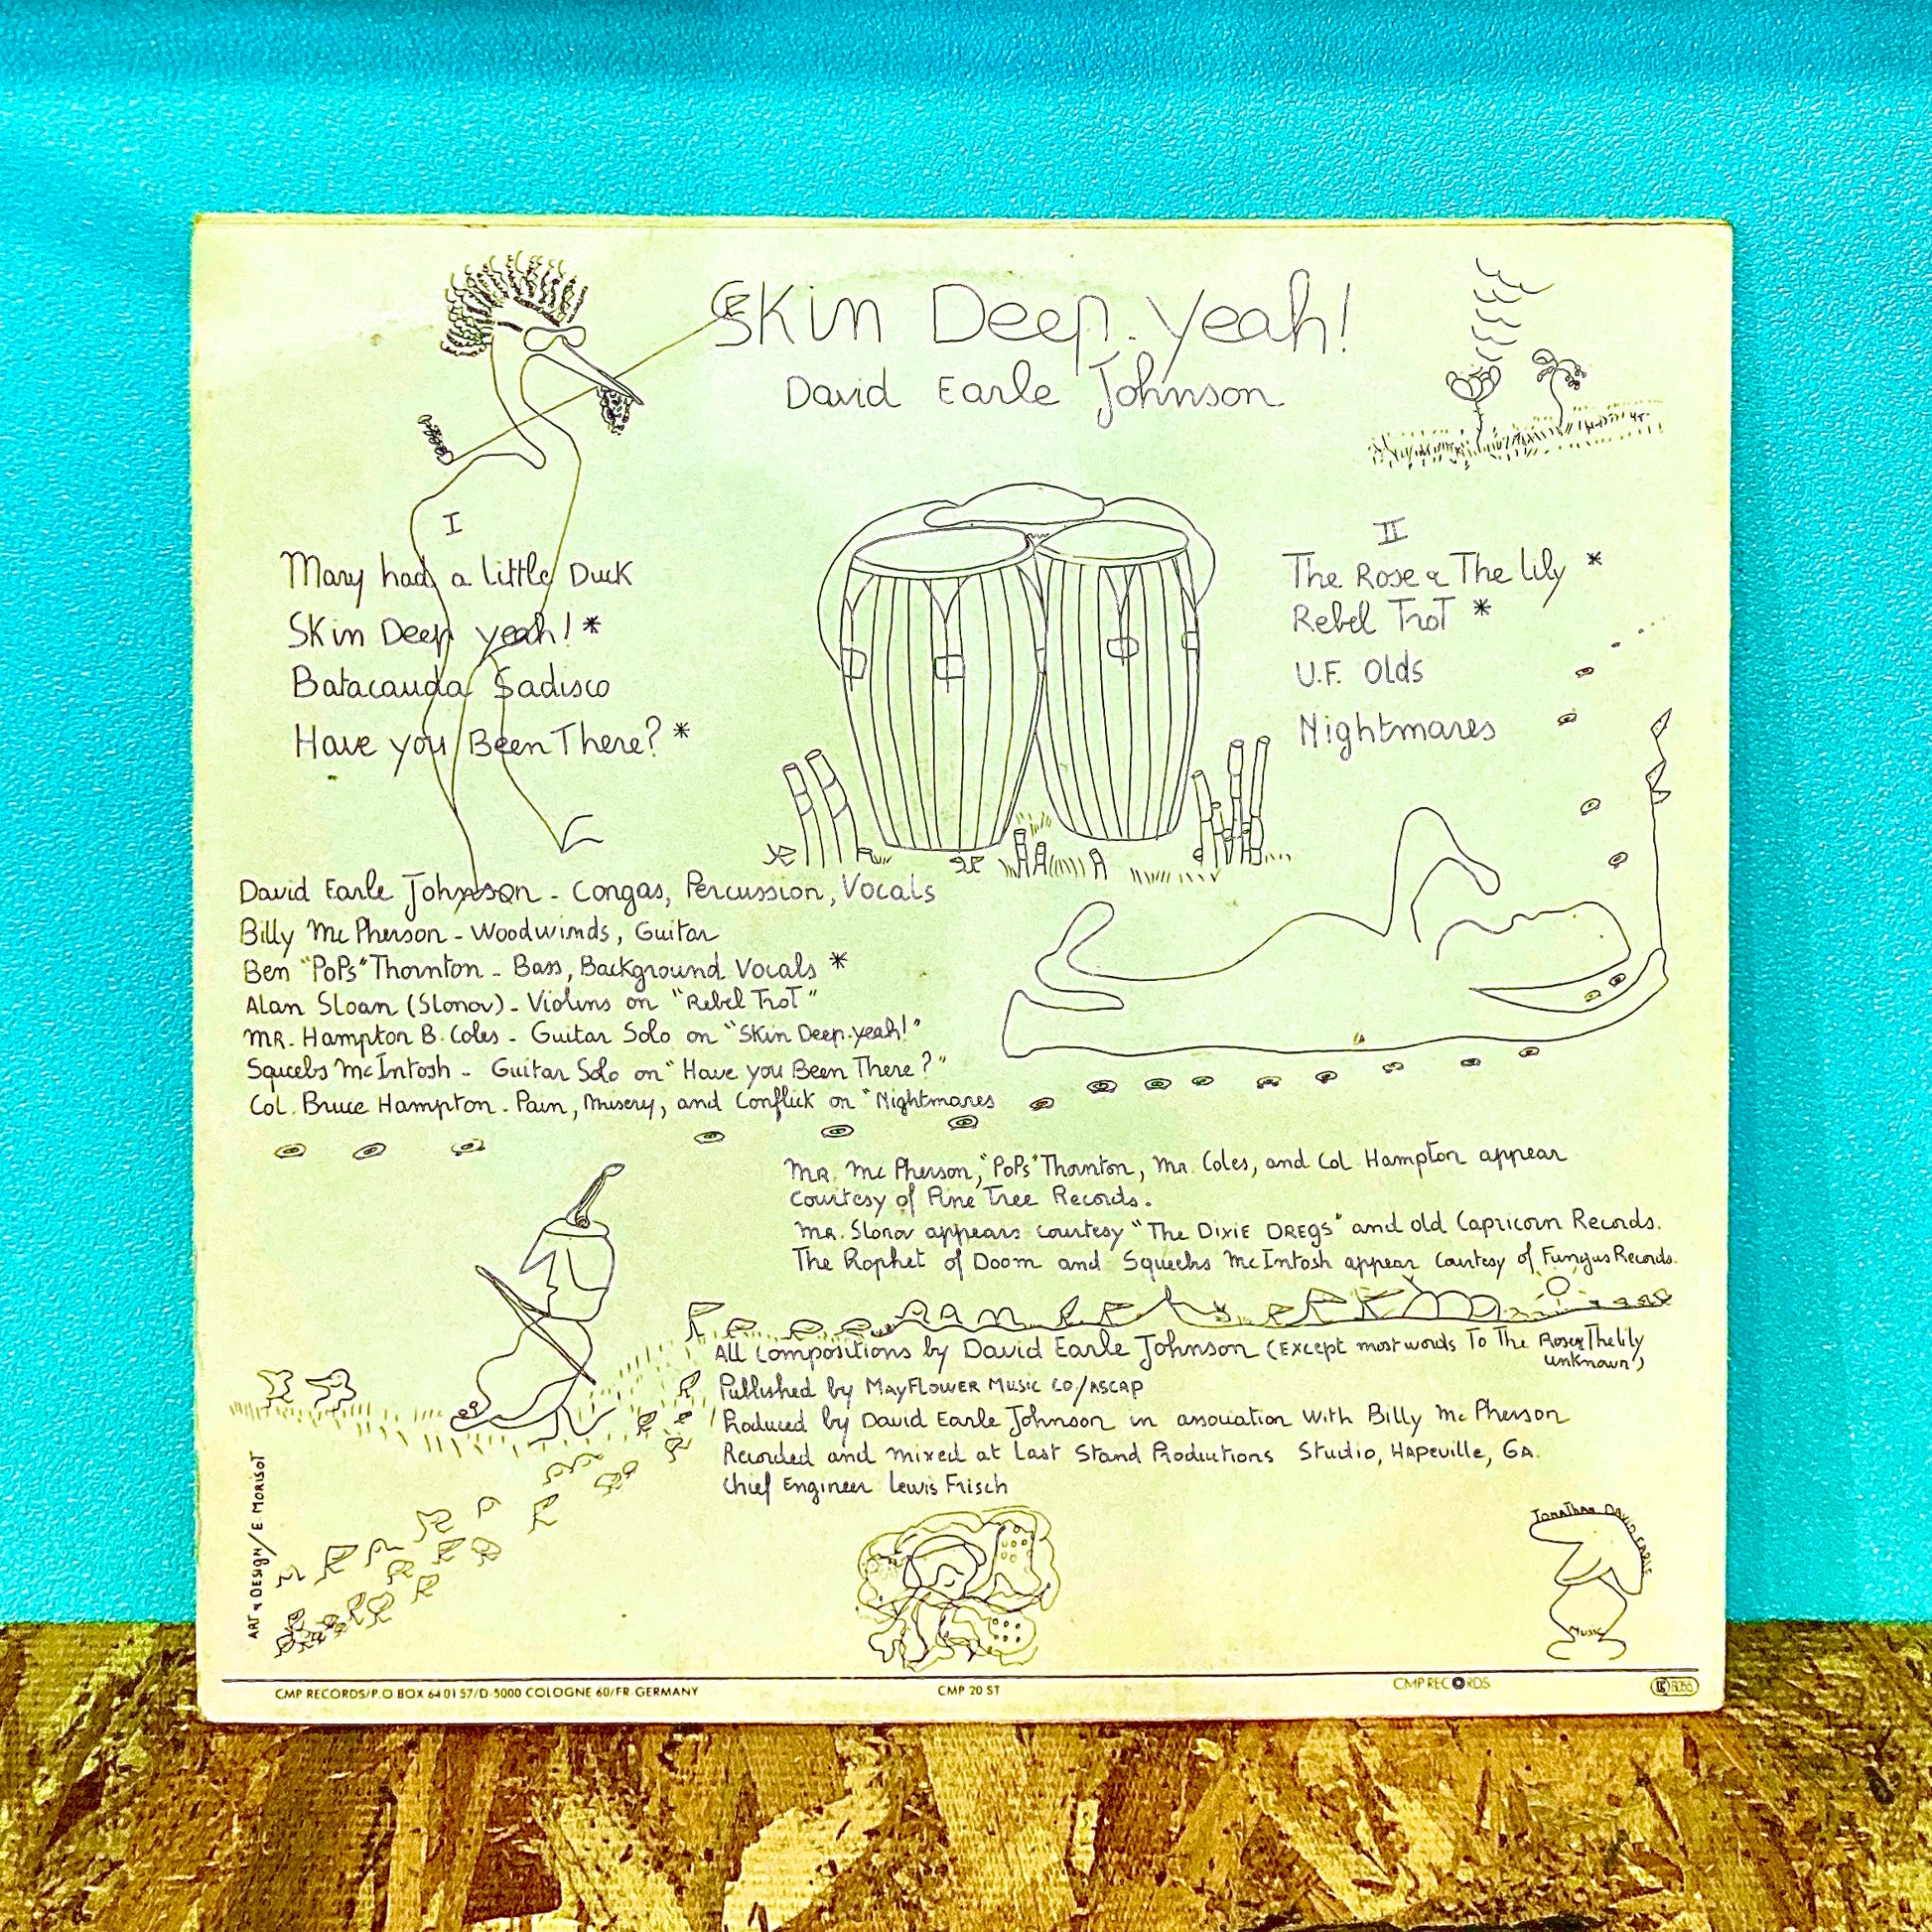 Skin Deep. yeah!
David Earle Johnson
I
Mary had a little Duck
Skin Deep yeah! *
Batacauda Sadisco
Have you Been There? *
II
The Rose & The lily *
Rebel Trot *
U.F. Olds
Nightmares
David Earle Johnson - Congas, Percussion, Vocals
Billy Mc Pherson - Woodwinds, Guitar
Ben "Pops" Thornton - Bass, Background Vocals *
Alan Sloan (Slonov) - Violins on "Rebel Trot"
MR. Hampton B. Coles - Guitar Solo on "Skin Deep. yeah!"
Squeebs McIntosh - Guitar Solo on "Have you Been There?"
Col. Bruce Hampton - Pain, Misery, and Conflick on "Nightmares
MR. Mc Pherson, "Pops" Thornton, Mr. Coles, and Col. Hampton appear
Courtesy of Pine Tree Records.
MR. Slonov appears courtesy "The DIXIE DREGS" and old Capricorn Records.
The Prophet of Doom and Squeebs McIntosh appear Courtesy of Fungus Records.
All Compositions by David Earle Johnson (Except most words To The Rose & The lily
unknown)
Published by MAYFLOWER MUSIC CO/ASCAP
Produced by David Earle Johnson in association with Billy Mc Pherson
Recorded and mixed at Last Stand Productions Studio, HAPEVILLE, GA.
Chief Engineer Lewis Frisch
ART & DESIGN/E. MORISOT
JONATHAN DAVID EARLE
MUSIC
CMP RECORDS/P.O BOX 64 01 57/D-5000 COLOGNE 60/FR-GERMANY
CMP 20 ST
CMP RECORDS